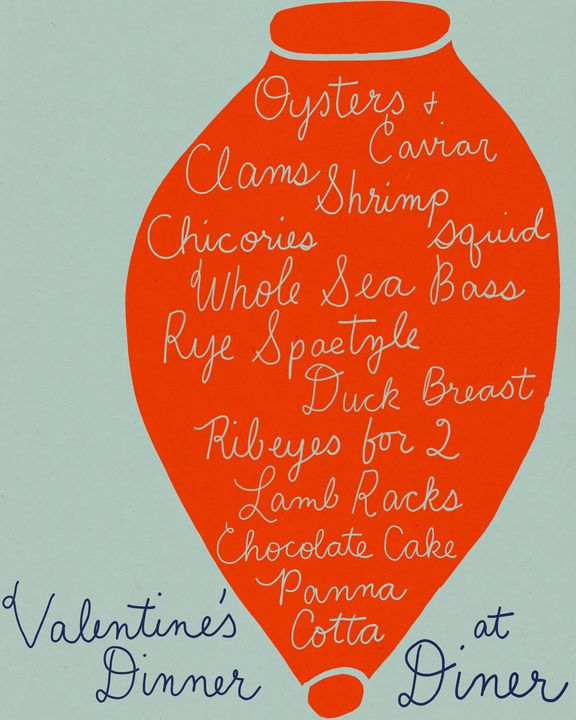 Oysters +
Caviar
Clams
Shrimp
Chicories squid
Whole Sea Bass
Rye Spaetzle
Duck Breast
Ribeyes for 2
Lamb Racks
Chocolate Cake
Panna
Cotta
Valentine's
Dinner
at
Diner